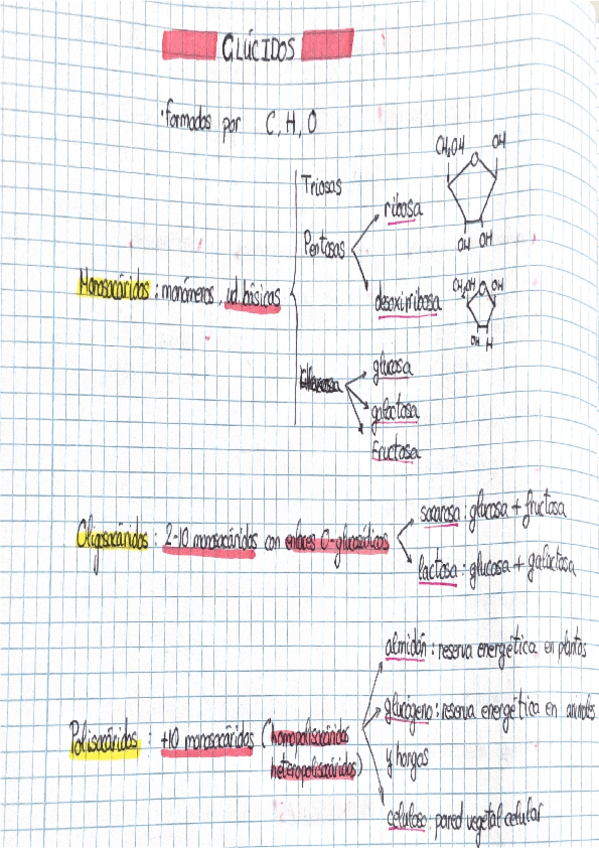 GLÚCIDOS
·formados por C, H, O
Triosas
Pentosas
ribosa
CH2OH O OH
OH OH
Monosacáridos : monómeros, ud. básicas
desoxirribosa
CH2OH O OH
OH H
glucosa
galactosa
Fructosa
Oligosacáridos : 2-10 monosacáridos con enlaces O-glucosídicos
sacarosa : glucosa + fructosa
lactosa : glucosa + galactosa
almidón : reserva energética en plantas
Polisacáridos : +10 monosacáridos (homopolisacáridos
heteropolisacáridos)
glucógeno : reserva energética en animales
y hongos
celulosa : pared vegetal celular